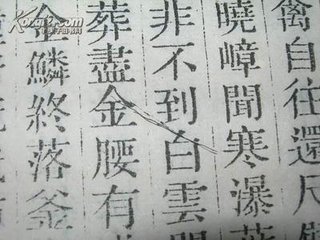 禽自往還尺
曉嶂聞寒瀑
非不到白雲
葬盡金腰有
令鱗終落釜